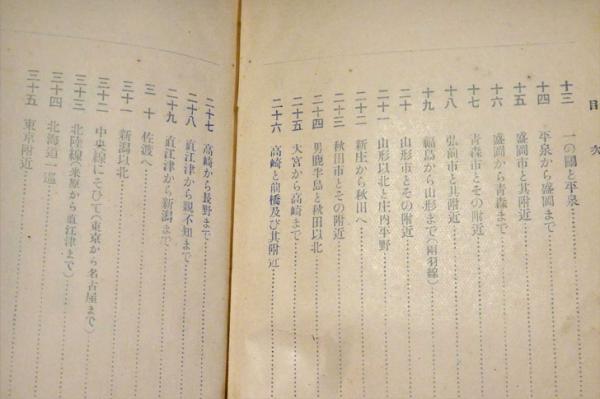 目次
十三 一の關と平泉
十四 平泉から盛岡まで
十五 盛岡市と其附近
十六 盛岡から青森まで
十七 青森市とその附近
十八 弘前市と其附近
十九 福島から山形まで(兩羽線)
二十 山形市とその附近
二十一 山形以北と庄内平野
二十二 新庄から秋田へ
二十三 秋田市とその附近
二十四 男鹿半島と秋田以北
二十五 大宮から高崎まで
二十六 高崎と前橋及び其附近
二十七 高崎から長野まで
二十八 直江津から親不知まで
二十九 直江津から新潟まで
三十 佐渡へ
三十一 新潟以北
三十二 中央線にそひて(東京から名古屋まで)
三十三 北陸線(米原から直江津まで)
三十四 北海道一巡
三十五 東京附近